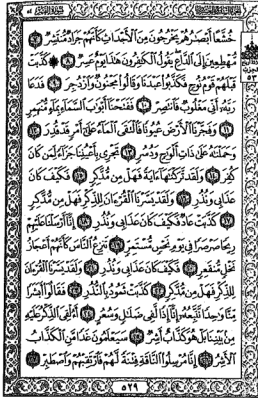 خُشَّعًا أَبْصَٰرُهُمْ يَخْرُجُونَ مِنَ ٱلْأَجْدَاثِ كَأَنَّهُمْ جَرَادٌ مُّنتَشِرٌ ٧
مُّهْطِعِينَ إِلَى ٱلدَّاعِ يَقُولُ ٱلْكَٰفِرُونَ هَٰذَا يَوْمٌ عَسِرٌ ٨ ۞ كَذَّبَتْ
قَبْلَهُمْ قَوْمُ نُوحٍ فَكَذَّبُوا۟ عَبْدَنَا وَقَالُوا۟ مَجْنُونٌ وَٱزْدُجِرَ ٩ فَدَعَا
رَبَّهُۥٓ أَنِّى مَغْلُوبٌ فَٱنتَصِرْ ١٠ فَفَتَحْنَآ أَبْوَٰبَ ٱلسَّمَآءِ بِمَآءٍ مُّنْهَمِرٍ
١١ وَفَجَّرْنَا ٱلْأَرْضَ عُيُونًا فَٱلْتَقَى ٱلْمَآءُ عَلَىٰٓ أَمْرٍ قَدْ قُدِرَ ١٢
وَحَمَلْنَٰهُ عَلَىٰ ذَاتِ أَلْوَٰحٍ وَدُسُرٍ ١٣ تَجْرِى بِأَعْيُنِنَا جَزَآءً لِّمَن كَانَ
كُفِرَ ١٤ وَلَقَد تَّرَكْنَٰهَآ ءَايَةً فَهَلْ مِن مُّدَّكِرٍ ١٥ فَكَيْفَ كَانَ
عَذَابِى وَنُذُرِ ١٦ وَلَقَدْ يَسَّرْنَا ٱلْقُرْءَانَ لِلذِّكْرِ فَهَلْ مِن مُّدَّكِرٍ
١٧ كَذَّبَتْ عَادٌ فَكَيْفَ كَانَ عَذَابِى وَنُذُرِ ١٨ إِنَّآ أَرْسَلْنَا عَلَيْهِمْ
رِيحًا صَرْصَرًا فِى يَوْمِ نَحْسٍ مُّسْتَمِرٍّ ١٩ تَنزِعُ ٱلنَّاسَ كَأَنَّهُمْ أَعْجَازُ
نَخْلٍ مُّنقَعِرٍ ٢٠ فَكَيْفَ كَانَ عَذَابِى وَنُذُرِ ٢١ وَلَقَدْ يَسَّرْنَا ٱلْقُرْءَانَ
لِلذِّكْرِ فَهَلْ مِن مُّدَّكِرٍ ٢٢ كَذَّبَتْ ثَمُودُ بِٱلنُّذُرِ ٢٣ فَقَالُوٓا۟ أَبَشَرًا
مِّنَّا وَٰحِدًا نَّتَّبِعُهُۥٓ إِنَّآ إِذًا لَّفِى ضَلَٰلٍ وَسُعُرٍ ٢٤ أَءُلْقِىَ ٱلذِّكْرُ عَلَيْهِ
مِنۢ بَيْنِنَا بَلْ هُوَ كَذَّابٌ أَشِرٌ ٢٥ سَيَعْلَمُونَ غَدًا مَّنِ ٱلْكَذَّابُ
ٱلْأَشِرُ ٢٦ إِنَّا مُرْسِلُوا۟ ٱلنَّاقَةِ فِتْنَةً لَّهُمْ فَٱرْتَقِبْهُمْ وَٱصْطَبِرْ ٢٧
٥٢٩